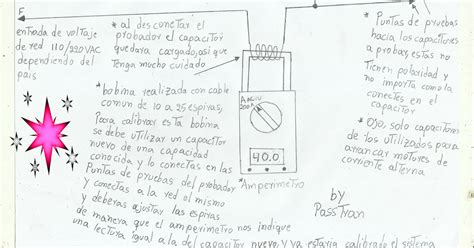 F
entrada de voltaje
de red 110/220VAC
dependiendo del
pais
*al desconectar el
probador el capacitor
quedara cargado, asi que
Tenga mucho cuidado
*bobina realizada con cable
comun de 10 a 25 espiras,
Para calibrar esta bobina
se debe utilizar un capacitor
nuevo de una capacidad
conocida y lo conectas en las
Puntas de pruebas del probador
y conectas a la red el mismo
y deberas ajustar las espiras
de manera que el amperimetro nos indique
una lectura igual a la del capacitor nuevo y ya estaria calibrado el sistema
200A
40.0
*Amperimetro
*Puntas de pruebas
hacia los capacitores
a probar, estas no
Tienen polaridad y
no importa como la
conectes en el
capacitor
*Ojo, solo capacitores
de los utilizados para
arrancar motores de
corriente alterna
by
PassTran